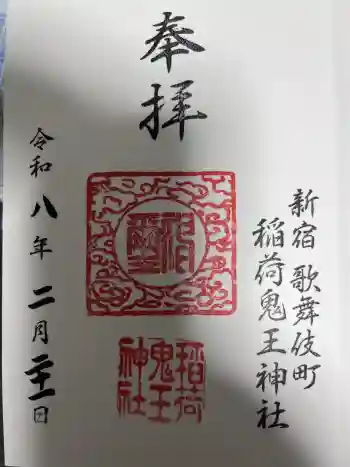 奉拝
新宿 歌舞伎町
稲荷鬼王神社
稲荷
鬼王
神社
令和八年二月二十一日